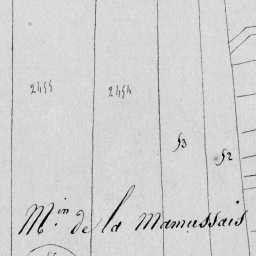 2455
2454
53
52
M.in de la Mamussais